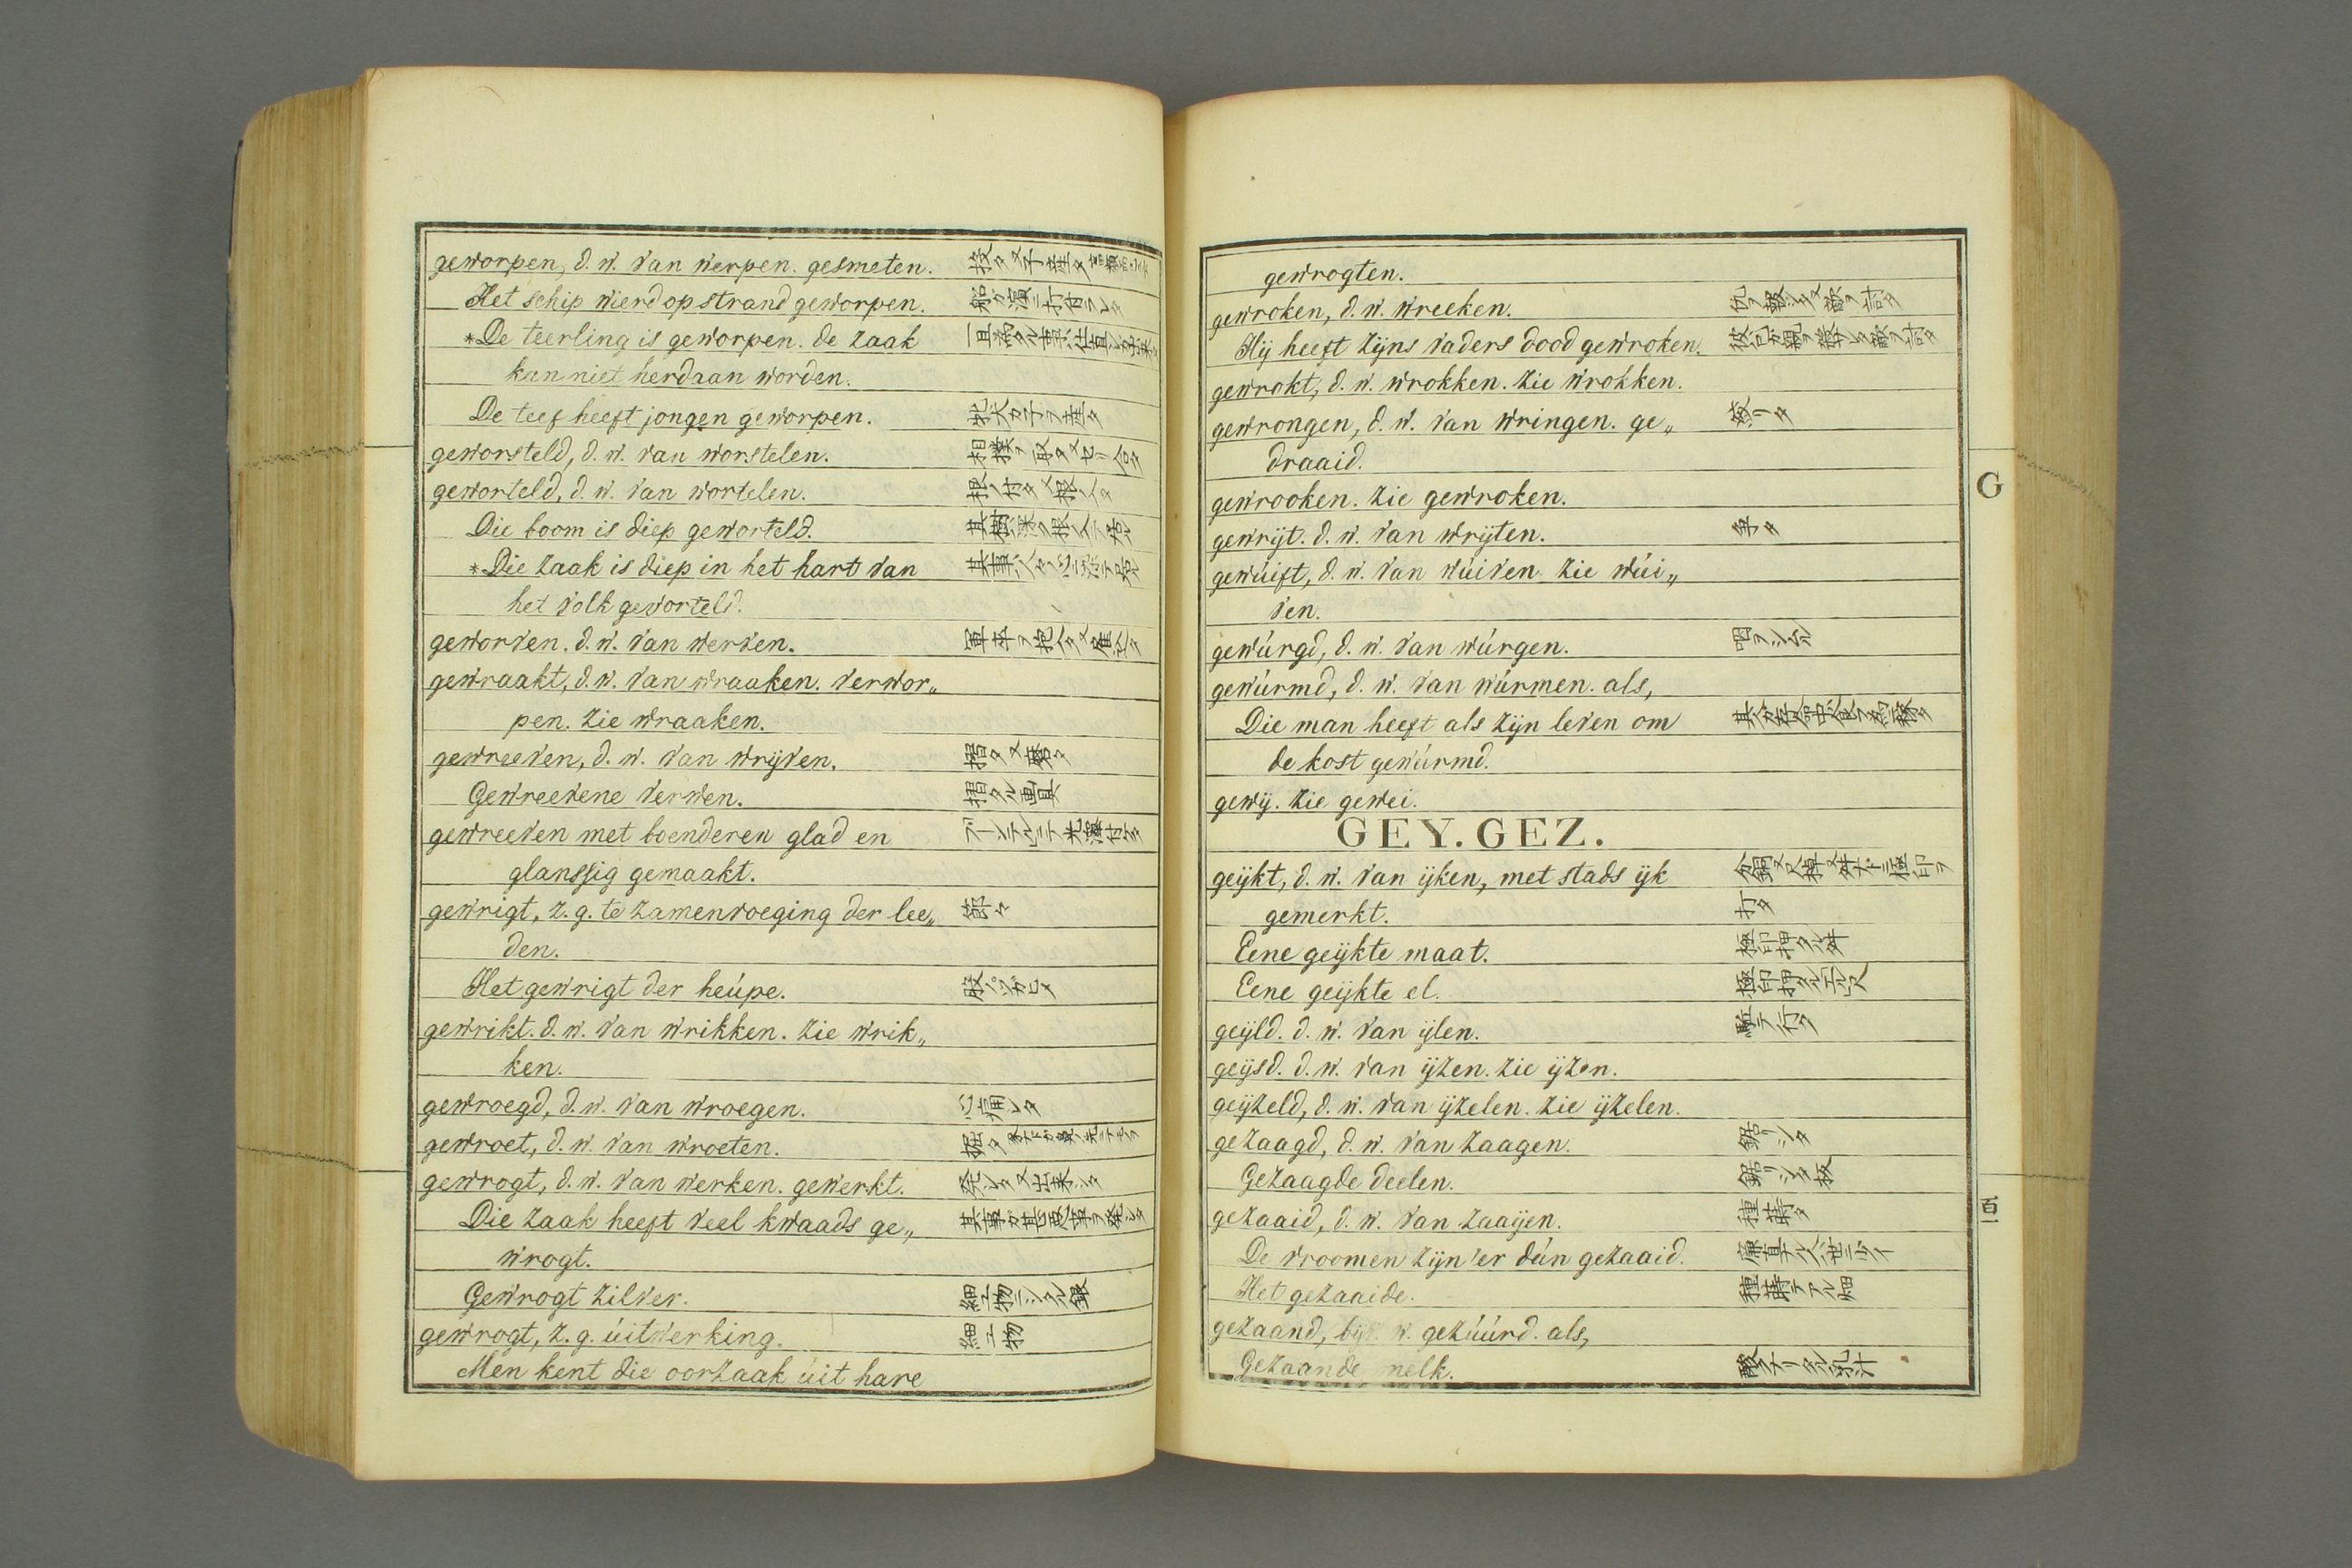 geworpen, d. w. van werpen. gesmeten. 投タ又子産タ
Het schip wierd op strand geworpen. 船ガ濱ニ打付ラレタ
*De teerling is geworpen. de zaak
kan niet herdaan worden.
De teef heeft jongen geworpen. 牝犬ガ子ヲ産タ
geworsteld, d. w. van worstelen. 相撲ヲ取タ又セリ合タ
geworteld, d. w. van wortelen. 根ノ付タ又根入タ
Die boom is diep geworteld. 其樹深ク根入テ居ル
*Die zaak is diep in het hart van
het volk geworteld.
geworven. d. w. van werven.
gewraakt, d. w. van wraaken. verwor„
pen. zie wraaken.
gewreeven, d. w. van wrijven. 摺タ又磨タ
Gewreevene verwen. 摺タル画具
gewreeven met boenderen glad en
glanssig gemaakt.
gewrigt, z. g. te zamenvoeging der lee„ 節々
den.
Het gewrigt der heúpe.
gewrikt. d. w. van wrikken. zie wrik„
ken.
gewroegd, d. w. van wroegen. 心痛シタ
gewroet, d. w. van wroeten. 堀タ
gewrogt, d. w. van werken. gewerkt. 発シタ又出来シタ
Die zaak heeft veel kwaads ge„ 其事ガ甚悪事ヲ発シタ
wrogt.
Gewrogt zilver. 細工物ニシタル銀
gewrogt, z. g. úitwerking. 細工物
Men kent die oorzaak úit hare
gewrogten.
gewroken, d. w. wreeken. 仇ヲ報シタ又敵ヲ討タ
Hij heeft zijns vaders dood gewroken.
gewrokt, d. w. wrokken. zie wrokken.
gewrongen, d. w. van wringen. ge„
draaid.
gewrooken. zie gewroken.
gewrijt. d. w. van wrijten. 争タ
gewúift, d. w. van wúiven. zie wúi„
ven.
gewúrgd, d. w. van wúrgen.
gewúrmd, d. w. van wúrmen. als,
Die man heeft als zijn leven om
de kost gewúrmd.
gewij. zie gewei.
GEY. GEZ.
geijkt, d. w. van ijken, met stads ijk
gemerkt. 打タ
Eene geijkte maat. 極印押タル舛
Eene geijkte el.
geijld. d. w. van ijlen.
geijsd. d. w. van ijzen. zie ijzen.
geijzeld, d. w. van ijzelen. zie ijzelen.
gezaagd, d. w. van zaagen. 鋸リシタ
Gezaagde deelen. 鋸リシタ板
gezaaid, d. w. van zaaijen. 種蒔タ
De vroomen zijn 'er dún gezaaid.
Het gezaaide. 種蒔テアル畑
gezaand, bijv. w. gezúúrd. als,
Gezaande melk.
G
百一